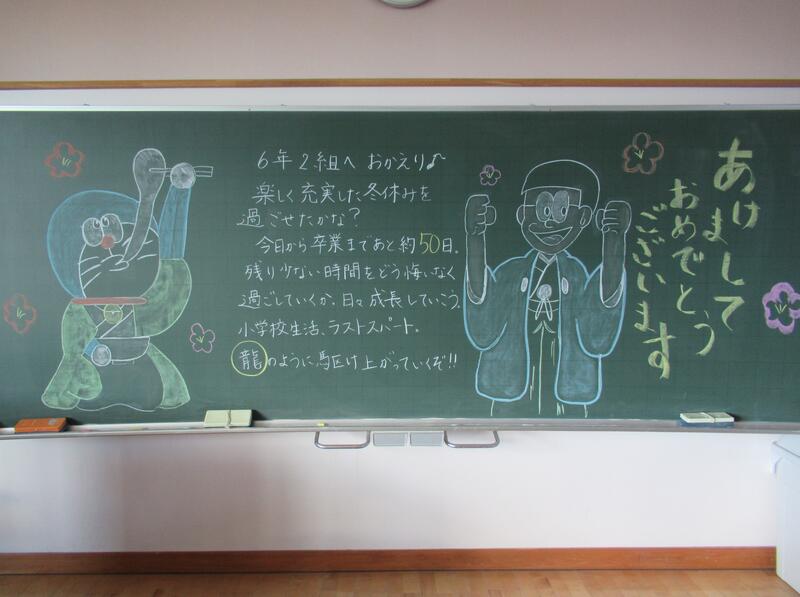 6年2組へ おかえり♪
楽しく充実した冬休みを
過ごせたかな?
今日から卒業まであと約50日。
残り少ない時間をどう悔いなく
過ごしていくか。日々成長していこう。
小学校生活、ラストスパート。
龍のように駆け上がっていくぞ!!
あけまして
おめでとう
ございます